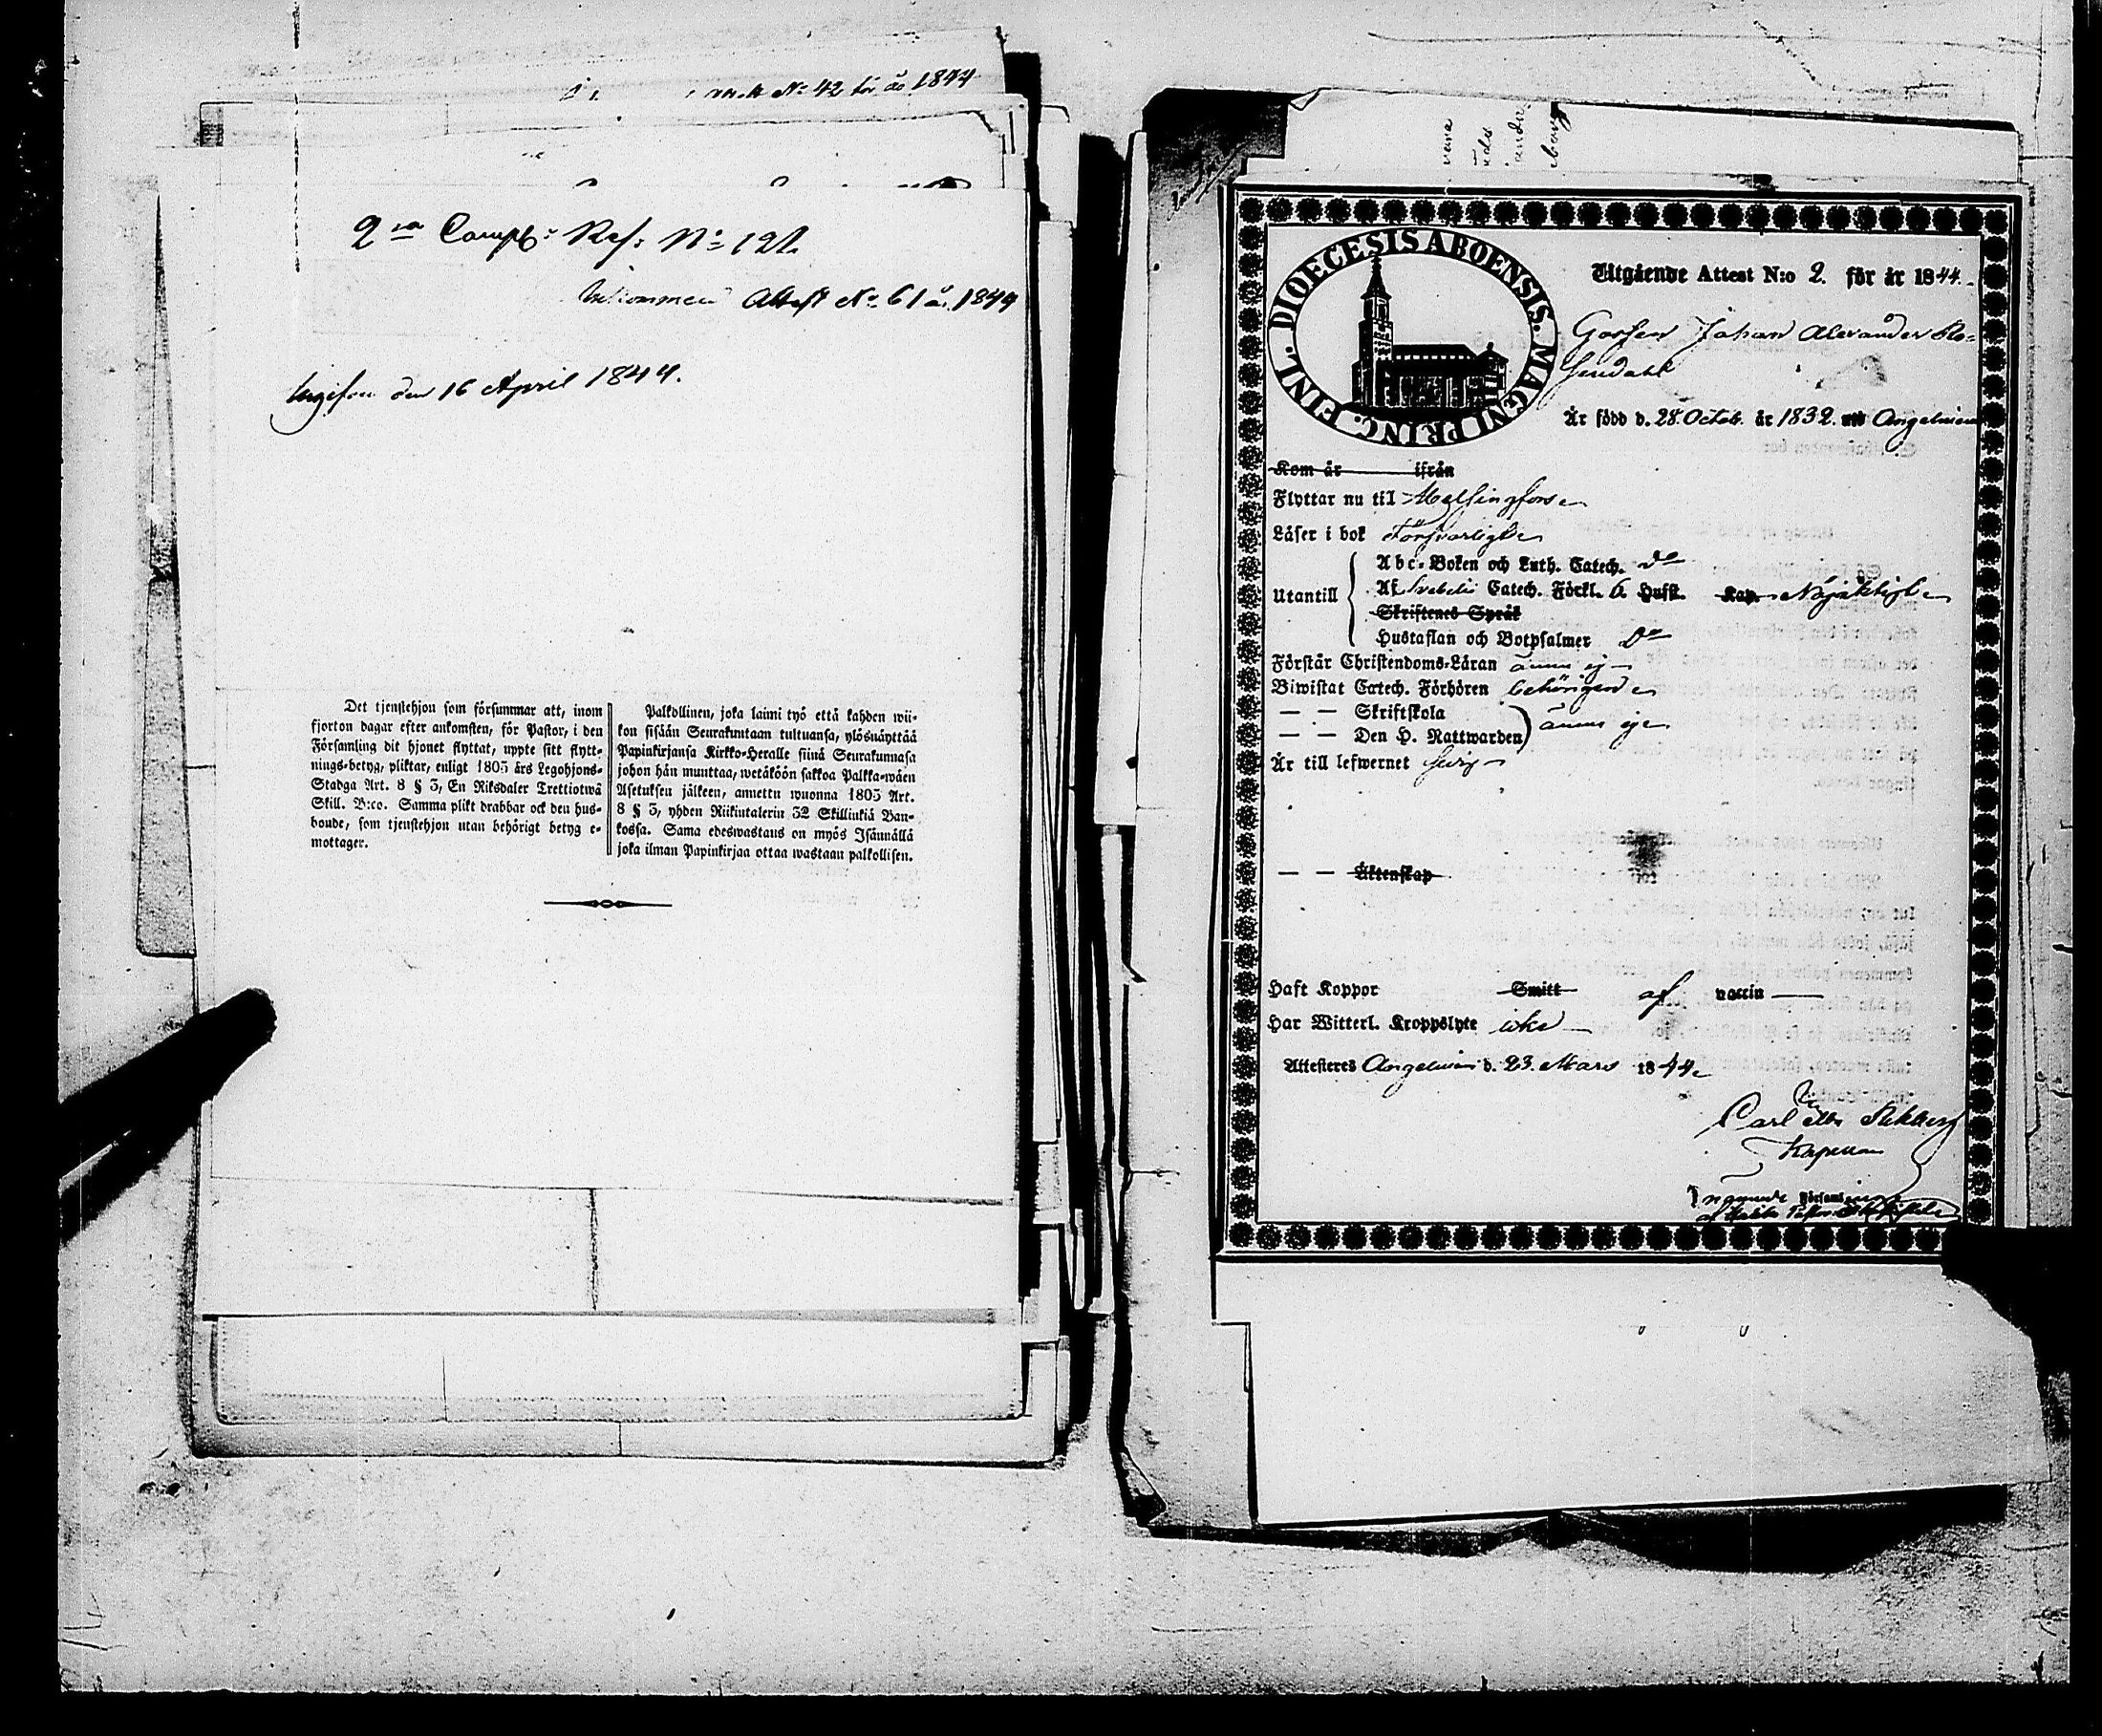 N:o 42 för år 1844
2:ra Comp:s Ref: N:o 121.
Inkommen Attest N:o 61 år 1844
Uppvist den 16 April 1844.
Det tjenstehjon som försummar att, inom
fjorton dagar efter ankomsten, för Pastor, i den
Församling dit hjonet flyttat, uppte sitt flytt-
nings-betyg, pliktar, enligt 1805 års Legohjons-
Stadga Art. 8 § 3, En Riksdaler Trettiotwå
Skill. B:co. Samma plikt drabbar ock den hus-
bonde, som tjenstehjon utan behörigt betyg e-
mottager.
Palkollinen, joka laimi lyö että kahden wii-
kon sisään Seurakuntaan tultuansa, ylösnäyttää
Papinkirjansa Kirkko-Herralle siinä Seurakunnasa
johon hän muuttaa, wetäköön sakkoa Palkka-wäen
Asetuksen jälkeen, annettu wuonna 1805 Art.
8 § 3, yhden Riikintalerin 32 Skillinkiä Ban-
kossa. Sama edeswastaus on myös Isännällä
joka ilman Papinkirjaa ottaa wastaan palkollisen.
DIOECESIS ABOENSIS. MAGNI PRINC. FINL.
Utgående Attest N:o 2. för år 1844.
Gossen Johan Alexander Ro-
sendahl
Är född d. 28 Octob. år 1832. Angelniemi
Kom år ifrån
Flyttar nu til Helsingfors
Läser i bok Försvarligt
Utantill
Abc-Boken och Luth. Catech. D:o
Af Svebelii Catech. Förkl. 6 Hufst. Kap. Nöjaktigt
Skriftenes Språk
Hustaflan och Botpsalmer D:o
Förstår Christendoms-Läran ännu ej
Biwistat Catech. Förhören behörigen
— — Skriftskola
— — Den H. Nattwarden
ännu ej
Är till lefwernet
— — Äktenskap
Haft Koppor Smitt af vaccin
Har Witterl. Kroppslyte icke
Attesteres Angelniemi d. 23. Mars 1844.
Carl
Kapellan